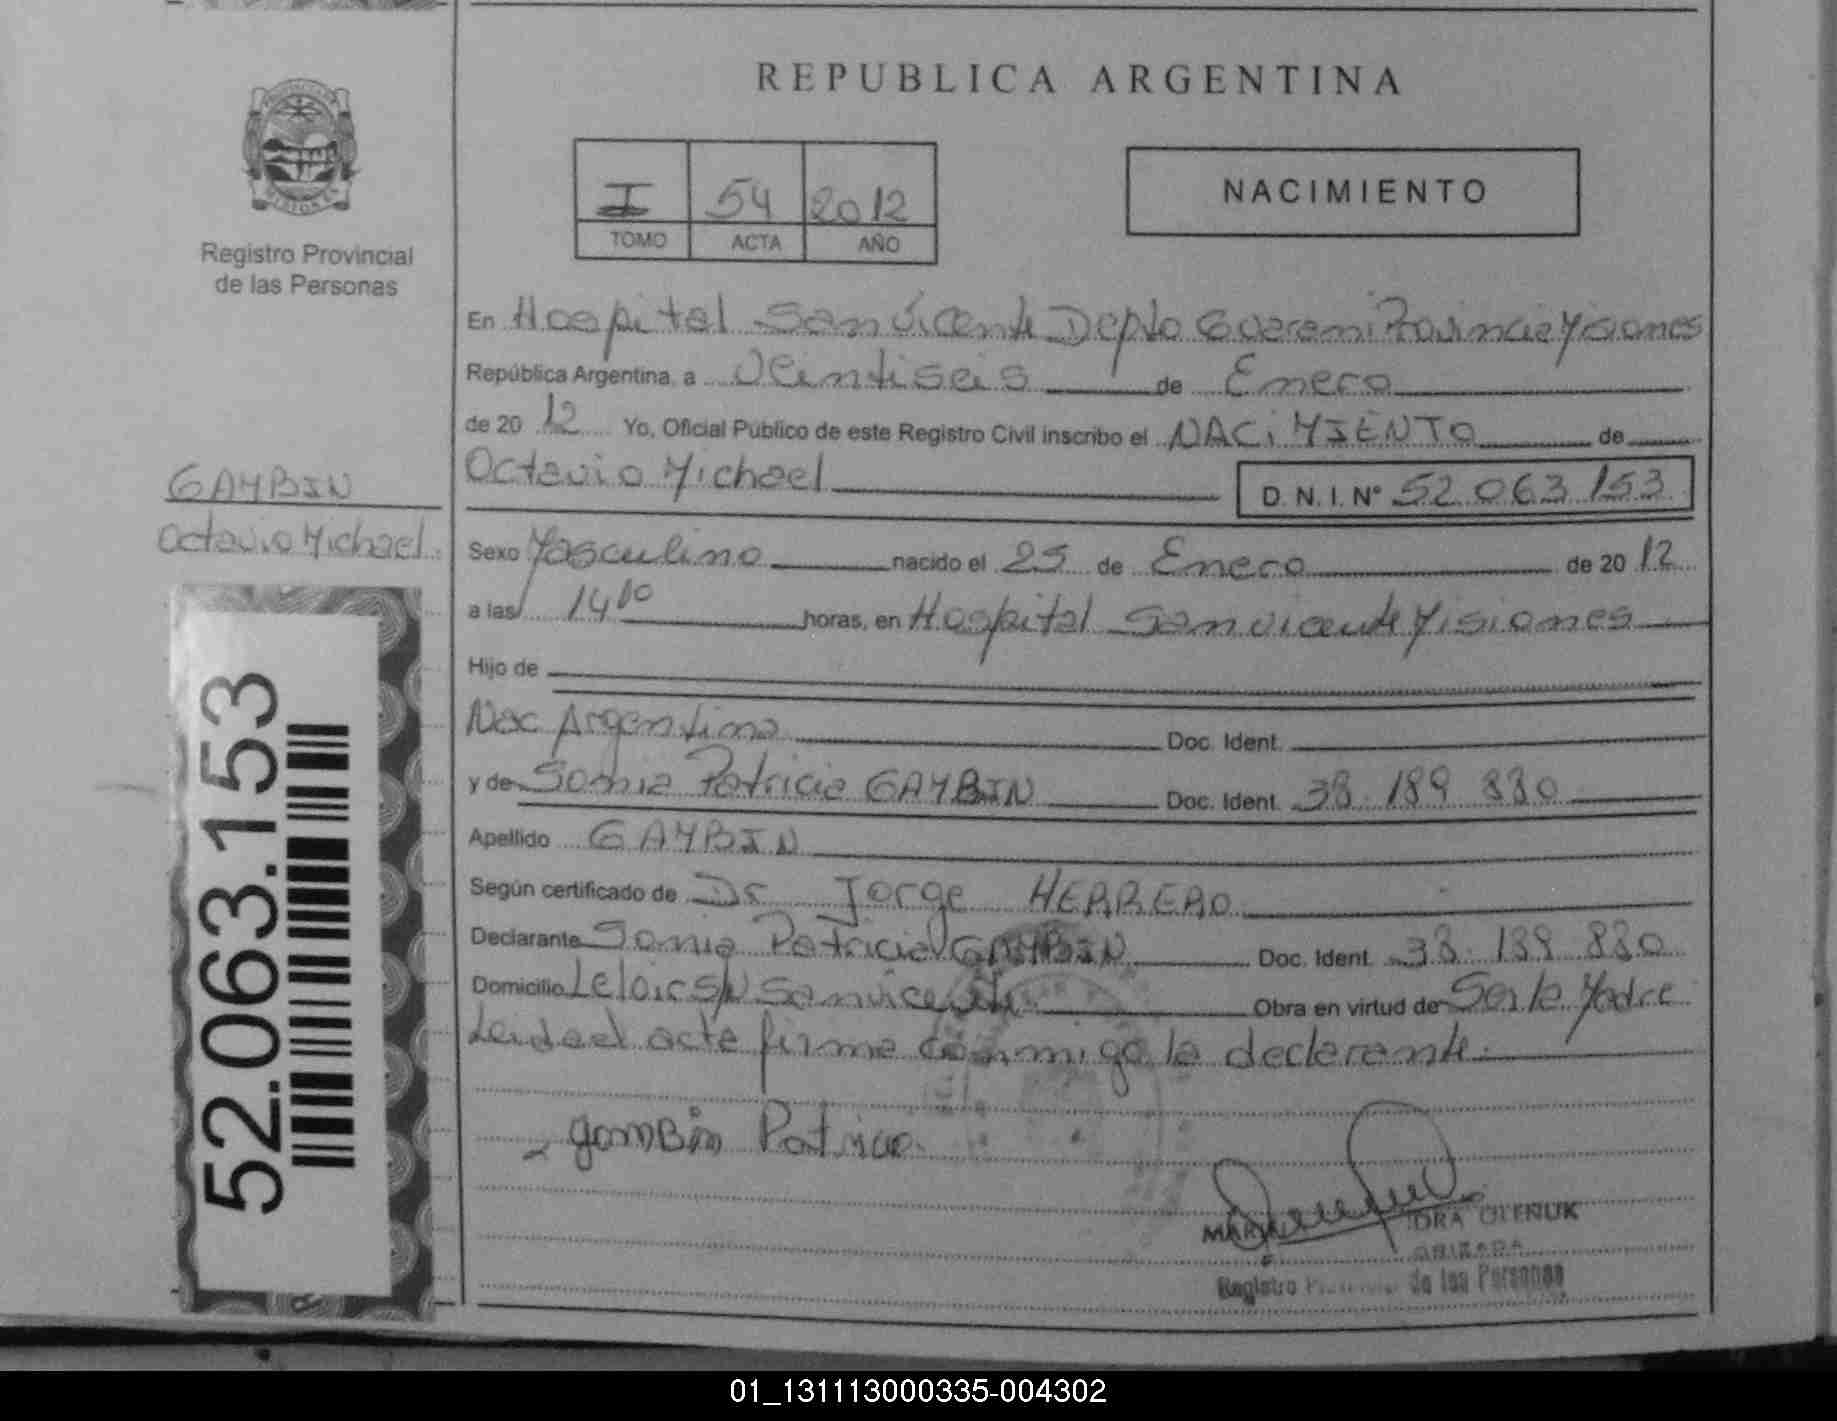 REPUBLICA ARGENTINA
I 54 2012
TOMO ACTA AÑO
NACIMIENTO
MISIONES
Registro Provincial
de las Personas
En Hospital San Vicente Depto Guarani Provincia Misiones
República Argentina, a Veintiseis de Enero
de 2012 Yo, Oficial Público de este Registro Civil inscribo el NACIMIENTO de
Octavio Michael D.N.I. N° 52.063.153
GAMBIN
Octavio Michael.
Sexo Masculino nacido el 25 de Enero de 2012
a las 14 10 horas, en Hospital San Vicente Misiones
Hijo de
Nac Argentina Doc. Ident.
y de Sonia Patricia GAMBIN Doc. Ident. 38.189.880
Apellido GAMBIN
Según certificado de Dr Jorge HERRERO
Declarante Sonia Patricia GAMBIN Doc. Ident. 38.189.880
Domicilio Leloir S/N San Vicente. Obra en virtud de Ser la Madre
Leida el acta firma conmigo la declarante.
gamBin Patricia
OLENIUK
Registro de las Personas
52.063.153
01_131113000335-004302